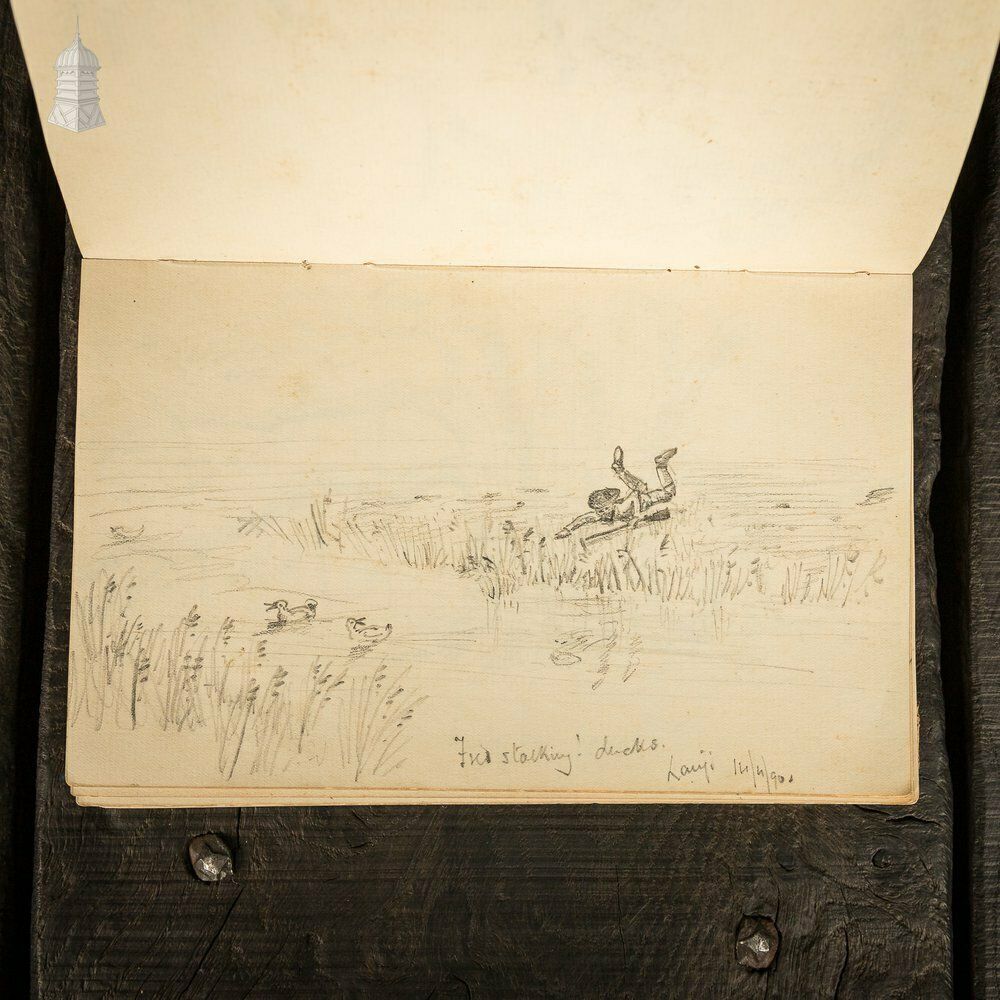 Fred stalking! ducks.
Lanji 14/4/90.